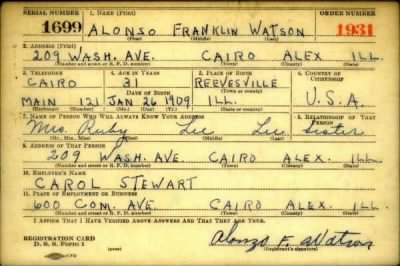 SERIAL NUMBER 1. NAME (Print) ORDER NUMBER
1699 ALONSO FRANKLIN WATSON 1931
(First) (Middle) (Last)
2. ADDRESS (Print)
209 WASH. AVE. CAIRO ALEX ILL.
(Number and street or R. F. D. number) (Town) (County) (State)
3. TELEPHONE 4. AGE IN YEARS 5. PLACE OF BIRTH 6. COUNTRY OF CITIZENSHIP
CAIRO 31 REEVESVILLE
DATE OF BIRTH (Town or county)
MAIN 121 JAN 26 1909 ILL. U.S.A.
(Exchange) (Number) (Mo.) (Day) (Yr.) (State or country)
7. NAME OF PERSON WHO WILL ALWAYS KNOW YOUR ADDRESS 8. RELATIONSHIP OF THAT PERSON
Mrs. Ruby Lee Lee Sister
(Mr., Mrs., Miss) (First) (Middle) (Last)
9. ADDRESS OF THAT PERSON
209 WASH. AVE. CAIRO ALEX. ILL
(Number and street or R. F. D. number) (Town) (County) (State)
10. EMPLOYER'S NAME
CAROL STEWART
11. PLACE OF EMPLOYMENT OR BUSINESS
600 COM. AVE. CAIRO ALEX. ILL
(Number and street or R. F. D. number) (Town) (County) (State)
I AFFIRM THAT I HAVE VERIFIED ABOVE ANSWERS AND THAT THEY ARE TRUE.
REGISTRATION CARD
D. S. S. Form 1 Alonzo F. Watson
(Registrant's signature)